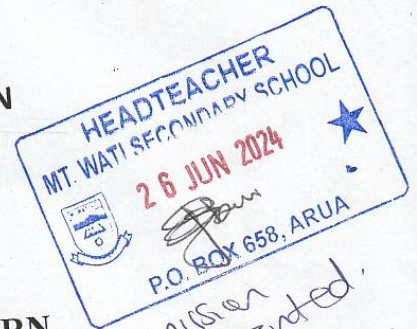 N
HEADTEACHER
MT. WATI SECONDARY SCHOOL
26 JUN 2024
P.O. BOX 658, ARUA
RN